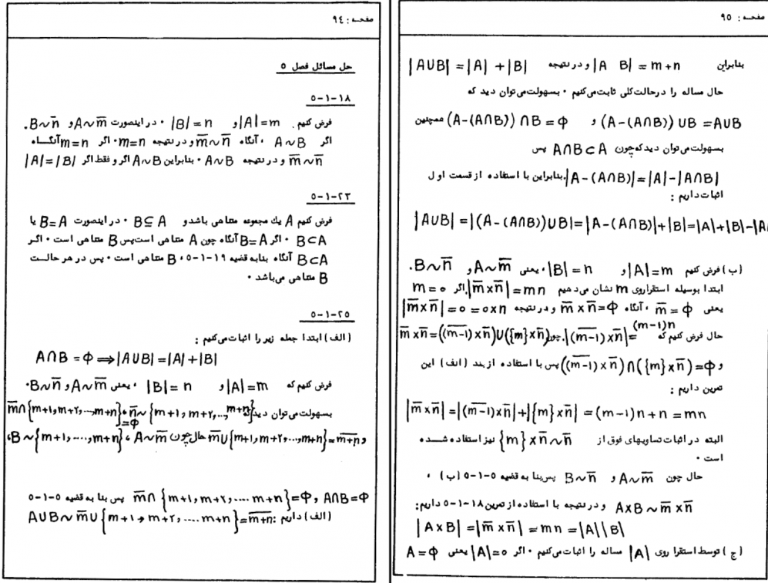 صفحه: ۹۴
حل مسائل فصل ۵
۵-۱-۱۸
فرض کنیم |A|=m و |B|=n . در اینصورت A~m̅ و B~n̅.
اگر A~B ، آنگاه m̅~n̅ و در نتیجه m=n. اگر m=n آنگاه
m̅~n̅ و در نتیجه A~B . بنابراین A~B اگر و فقط اگر |A|=|B|
۵-۱-۲۳
فرض کنیم A یك مجموعه متناهی باشد و B⊆A . در اینصورت B=A یا
B⊂A . اگر B=A آنگاه چون A متناهی است پس B متناهی است . اگر
B⊂A آنگاه بنا به قضیه ۵-۱-۱۹ ، B متناهی است . پس در هر حالت
B متناهی می‌باشد .
۵-۱-۲۵
(الف) ابتدا جمله زیر را اثبات می‌کنیم :
A∩B=Φ ⟹ |A∪B|=|A|+|B|
فرض کنیم که |A|=m و |B|=n ، یعنی A~m̅ و B~n̅.
بسهولت می‌توان دید m̅∩{m+1, m+۲,..., m+n}=Φ و n̅~{m+1, m+۲,..., m+n}
و m̅∪{m+1, m+۲,..., m+n}=m+n حال چون A~m̅ ، B~{m+1,...,m+n} ،
A∩B=Φ و m̅∩{m+1, m+۲,.... m+n}=Φ پس بنا به قضیه ۵-۱-۵
(الف) داریم : A∪B~m̅∪{m+1, m+۲,.... m+n}=m+n
صفحه: ۹۵
بنابراین |A B|=m+n و در نتیجه |A∪B|=|A|+|B|
حال مساله را در حالت کلی ثابت می‌کنیم . بسهولت می‌توان دید که
(A-(A∩B))∪B=A∪B و (A-(A∩B))∩B=Φ همچنین
بسهولت می‌توان دید که چون A∩B⊂A پس
|A-(A∩B)|=|A|-|A∩B|. بنابراین با استفاده از قسمت اول
اثبات داریم :
|A∪B|=|(A-(A∩B))∪B|=|A-(A∩B)|+|B|=|A|+|B|-|A
(ب) فرض کنیم |A|=m و |B|=n ، یعنی A~m̅ و B~n̅.
ابتدا بوسیله استقرا روی m نشان می‌دهیم |m̅×n̅|=mn. اگر m=0
یعنی m̅=Φ ، آنگاه m̅×n̅=Φ و در نتیجه |m̅×n̅|=0=0×n
حال فرض کنیم که |(m-1)×n̅|=(m-1)n. چون m̅×n̅=((m-1)×n̅)∪({m}×n̅)
و ((m-1)×n̅)∩({m}×n̅)=Φ پس با استفاده از بند (الف) این
تمرین داریم :
|m̅×n̅|=|(m-1)×n̅|+|{m}×n̅|=(m-1)n+n=mn
البته در اثبات تساویهای فوق از {m}×n̅~n̅ نیز استفاده شده
است .
حال چون A~m̅ و B~n̅ پس بنا به قضیه ۵-۱-۵ (ب) ،
A×B~m̅×n̅ و در نتیجه با استفاده از تمرین ۵-۱-۱۸ داریم:
|A×B|=|m̅×n̅|=mn=|A||B|
(ج) توسط استقرا روی |A| مساله را اثبات می‌کنیم . اگر |A|=0 یعنی A=Φ